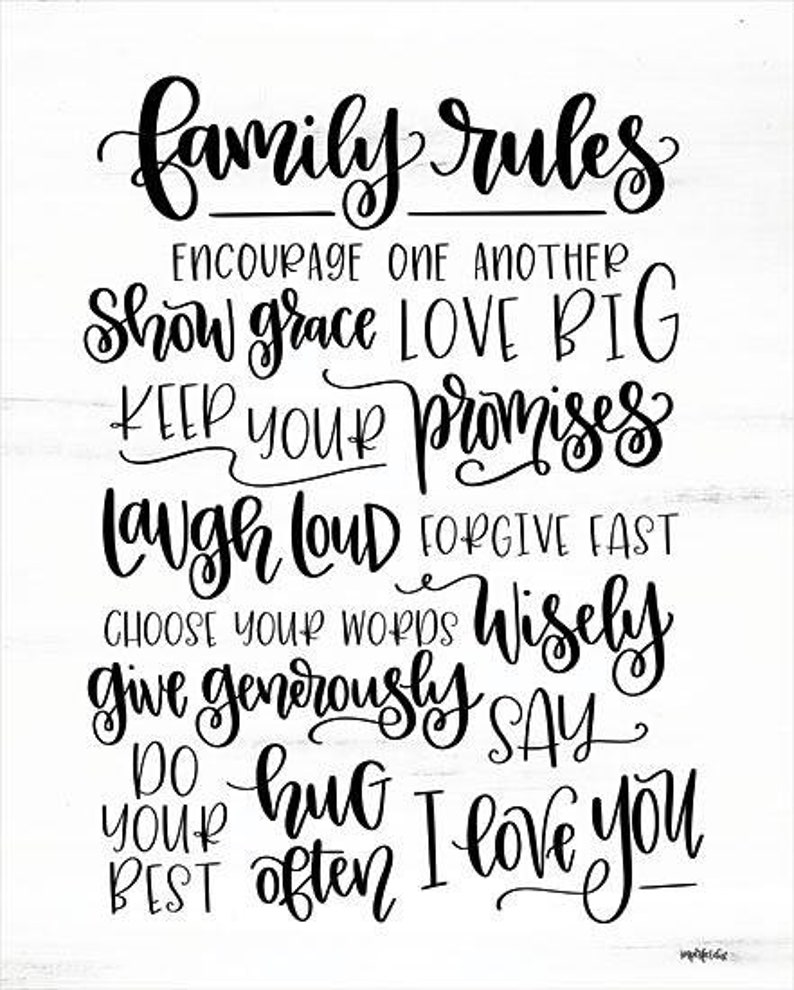 family rules
ENCOURAGE ONE ANOTHER
Show grace LOVE BIG
KEEP YOUR promises
laugh loud FORGIVE FAST
CHOOSE YOUR WORDS Wisely
give generously
DO YOUR BEST
hug often
SAY I love you